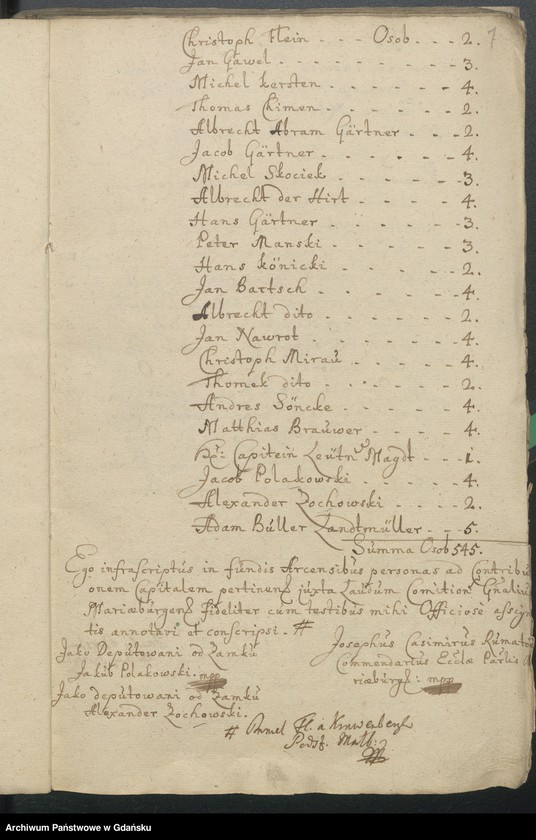 Christoph Klein - - - Osob - - - 2. 7
Jan Gawel - - - - - - - - - 3.
Michel Kersten - - - - - - 4.
Thomas Chimen - - - - - - 2.
Albrecht Abram Gärtner - - - 2.
Jacob Gärtner - - - - - - 4.
Michel Skociek - - - - - - 3.
Albrecht der Hirt - - - - - 4.
Hans Gärtner - - - - - - 3.
Peter Manski - - - - - - 3.
Hans Könicki - - - - - - 2.
Jan Bartsch - - - - - - 4.
Albrecht dito - - - - - - 2.
Jan Nawrot - - - - - - 4.
Christoph Mirau - - - - - 4.
Thomek dito - - - - - - 2.
Andres Söncke - - - - - 4.
Matthias Brauwer - - - - 4.
Capitein Leütn Magdt - - - 1.
Jacob Polakowski - - - - - 4.
Alexander Zochowski - - - - 2.
Adam Büller Landtmüller - - 5.
Summa Osob 545.
Ego infrascriptus in fundis Arcensibus personas ad Contribu
onem Capitalem pertinen juxta Laudum Comition Gnaliu
Mariæburgen fideliter cum testibus mihi Officiose assign
tis annotavi et conscripsi. #
Jako Deputowani od Zamku
Jakub Polakowski. mpp
Jako deputowani od Zamku
Alexander Zochowski.
Josephus Casimirus Rumato
Commendarius Ecclæ Parlis
riæburg: mpp
# 
Podst. Malb:
Archiwum Państwowe w Gdańsku